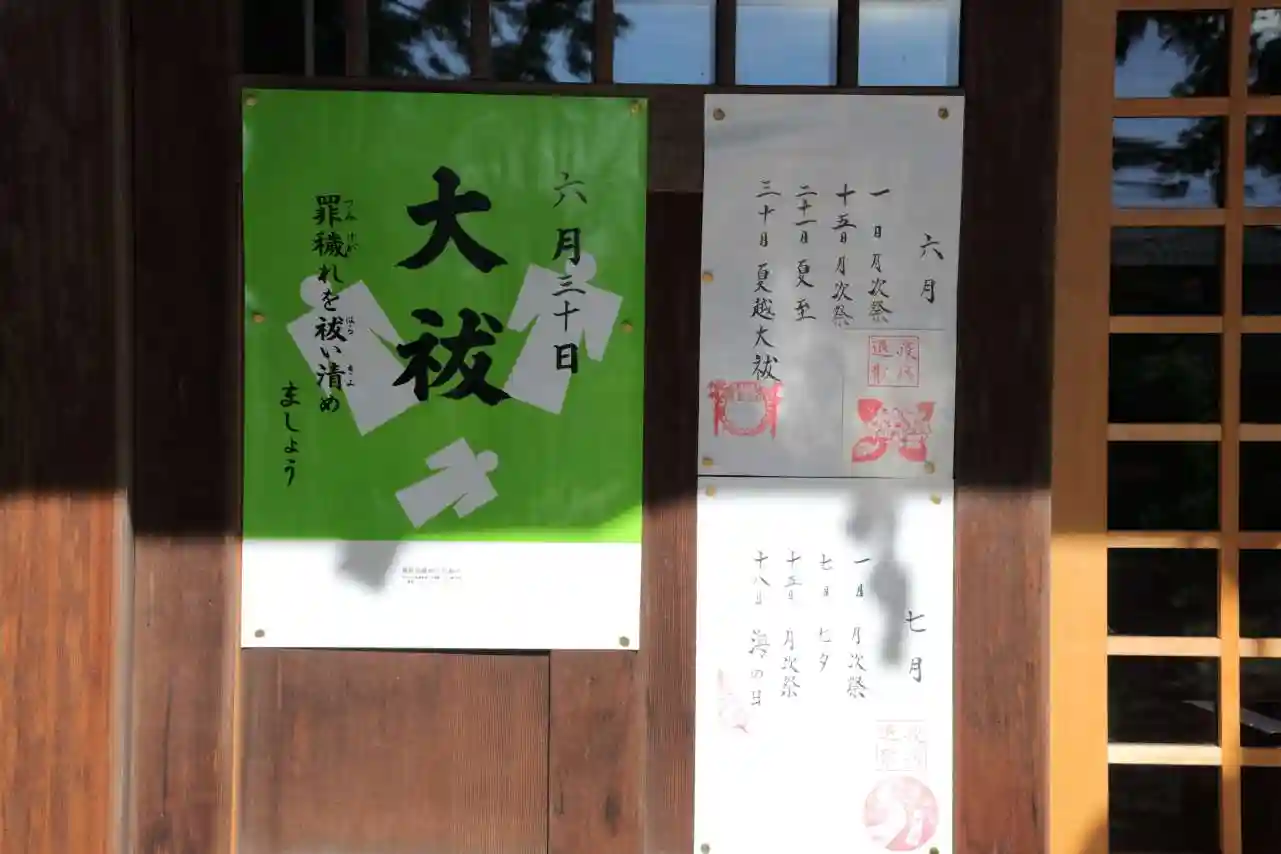 六月三十日
大祓
罪穢れを祓い清め
つみ けが はら きよ
ましょう
六月
一日月次祭
十五日月次祭
二十一日夏至
三十日夏越大祓
七月
一日 月次祭
七日 七夕
十五日 月次祭
十八日 海の日